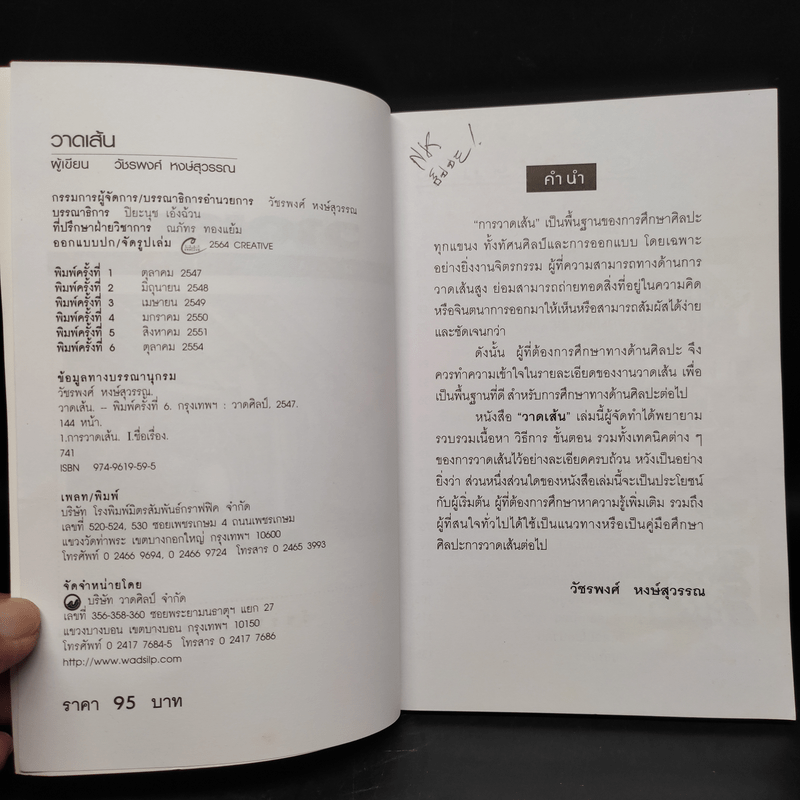 วาดเส้น
ผู้เขียน วัชรพงศ์ หงษ์สุวรรณ
กรรมการผู้จัดการ/บรรณาธิการอำนวยการ วัชรพงศ์ หงษ์สุวรรณ
บรรณาธิการ ปิยะนุช เอ้งฉ้วน
ที่ปรึกษาฝ่ายวิชาการ ณภัทร ทองแย้ม
ออกแบบปก/จัดรูปเล่ม 2564 CREATIVE
พิมพ์ครั้งที่ 1 ตุลาคม 2547
พิมพ์ครั้งที่ 2 มิถุนายน 2548
พิมพ์ครั้งที่ 3 เมษายน 2549
พิมพ์ครั้งที่ 4 มกราคม 2550
พิมพ์ครั้งที่ 5 สิงหาคม 2551
พิมพ์ครั้งที่ 6 ตุลาคม 2554
ข้อมูลทางบรรณานุกรม
วัชรพงศ์ หงษ์สุวรรณ.
วาดเส้น. – พิมพ์ครั้งที่ 6. กรุงเทพฯ : วาดศิลป์, 2547.
144 หน้า.
1.การวาดเส้น. I.ชื่อเรื่อง.
741
ISBN 974-9619-59-5
เพลท/พิมพ์
บริษัท โรงพิมพ์มิตรสัมพันธ์กราฟฟิค จำกัด
เลขที่ 520-524, 530 ซอยเพชรเกษม 4 ถนนเพชรเกษม
แขวงวัดท่าพระ เขตบางกอกใหญ่ กรุงเทพฯ 10600
โทรศัพท์ 0 2466 9694, 0 2466 9724 โทรสาร 0 2465 3993
จัดจำหน่ายโดย
บริษัท วาดศิลป์ จำกัด
เลขที่ 356-358-360 ซอยพระยามนธาตุฯ แยก 27
แขวงบางบอน เขตบางบอน กรุงเทพฯ 10150
โทรศัพท์ 0 2417 7684-5 โทรสาร 0 2417 7686
http://www.wadsilp.com
ราคา 95 บาท
คำนำ
"การวาดเส้น" เป็นพื้นฐานของการศึกษาศิลปะ
ทุกแขนง ทั้งทัศนศิลป์และการออกแบบ โดยเฉพาะ
อย่างยิ่งงานจิตรกรรม ผู้ที่ความสามารถทางด้านการ
วาดเส้นสูง ย่อมสามารถถ่ายทอดสิ่งที่อยู่ในความคิด
หรือจินตนาการออกมาให้เห็นหรือสามารถสัมผัสได้ง่าย
และชัดเจนกว่า
ดังนั้น ผู้ที่ต้องการศึกษาทางด้านศิลปะ จึง
ควรทำความเข้าใจในรายละเอียดของงานวาดเส้น เพื่อ
เป็นพื้นฐานที่ดี สำหรับการศึกษาทางด้านศิลปะต่อไป
หนังสือ "วาดเส้น" เล่มนี้ผู้จัดทำได้พยายาม
รวบรวมเนื้อหา วิธีการ ขั้นตอน รวมทั้งเทคนิคต่าง ๆ
ของการวาดเส้นไว้อย่างละเอียดครบถ้วน หวังเป็นอย่าง
ยิ่งว่า ส่วนหนึ่งส่วนใดของหนังสือเล่มนี้จะเป็นประโยชน์
กับผู้เริ่มต้น ผู้ที่ต้องการศึกษาหาความรู้เพิ่มเติม รวมถึง
ผู้ที่สนใจทั่วไปได้ใช้เป็นแนวทางหรือเป็นคู่มือศึกษา
ศิลปะการวาดเส้นต่อไป
วัชรพงศ์ หงษ์สุวรรณ